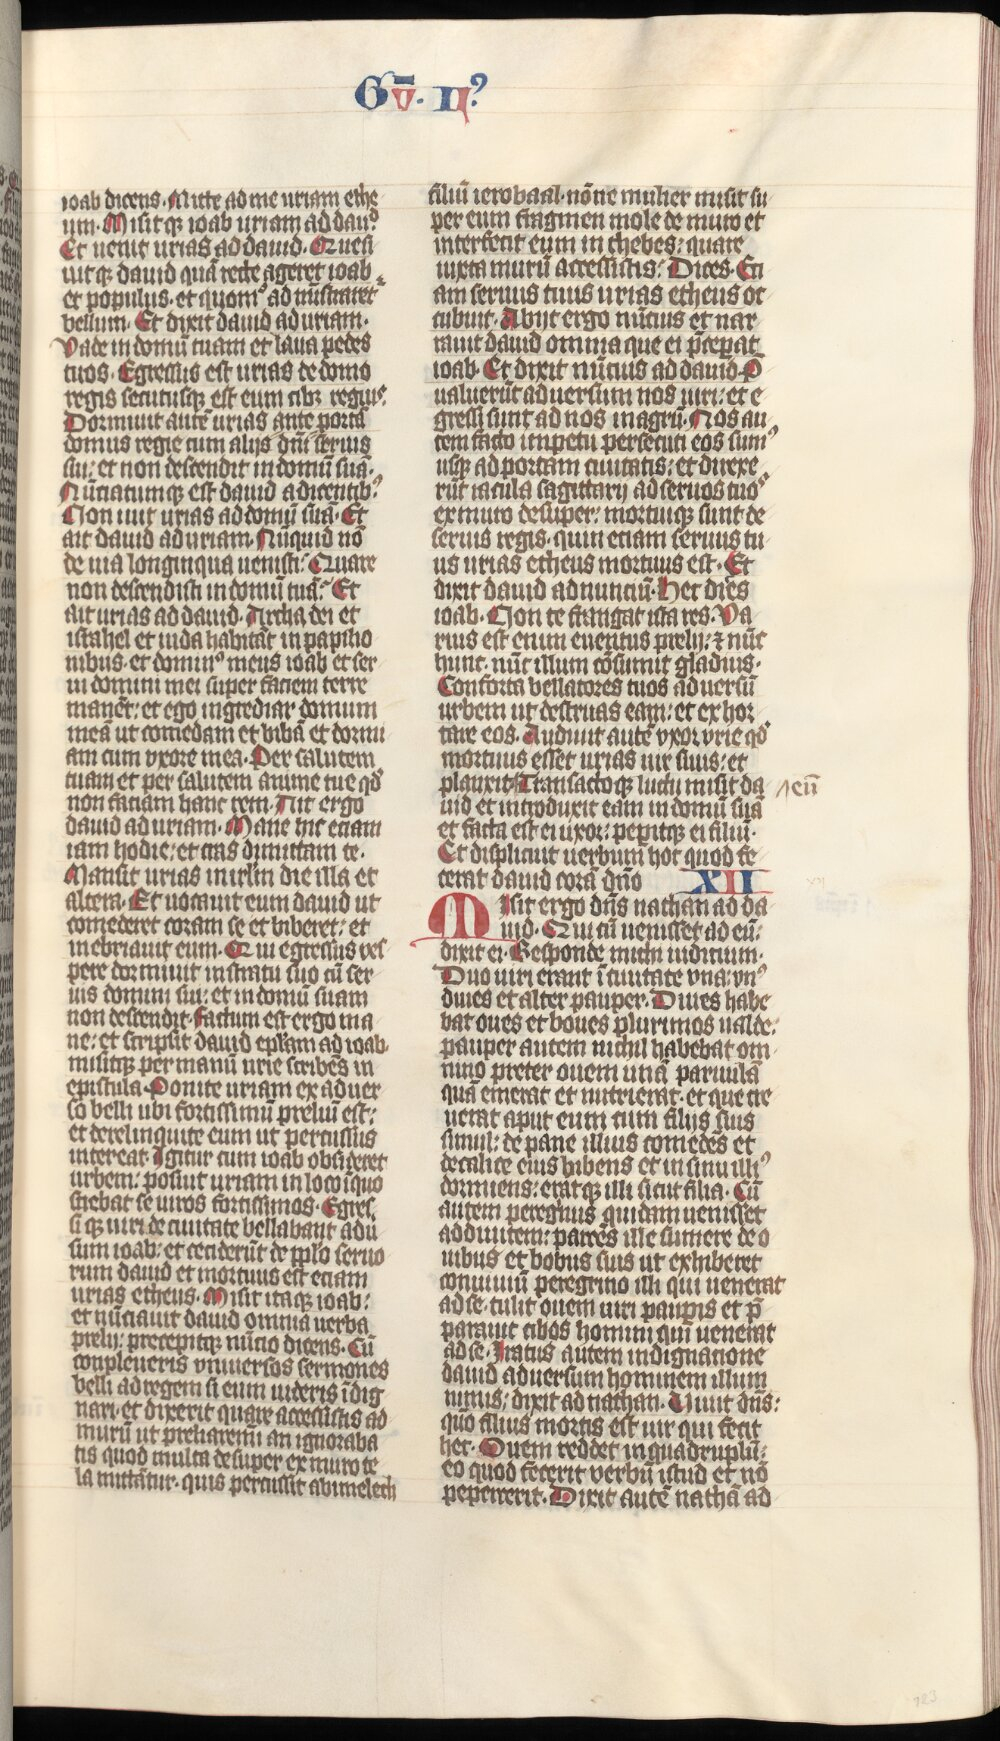 Gv̄. II᷒
ioab dicens. Mitte ad me uriam ethe
um. Misitqꝫ ioab uriam ad dauiᵈ
Et uenit urias ad dauid. Quesi
uitqꝫ dauid quā recte ageret ioab
et populus. et quomᵒ ad mīstraret᷒
bellum. Et dixit dauid ad uriam.
Vade in domū tuam et laua pedes
tuos. Egressus est urias de domo
regis secutusqꝫ est eum cibꝫ regius.
Dormiuit autē urias ante portā
domus regie cum alijs dn̄i seruis
sui: et non descendit in domū suā.
Nūciatumqꝫ est dauid a dicentib᷒
Non iuit urias ad domū suā. Et
ait dauid ad uriam. Nūquid nō
de uia longinqua uenisti: Quare
non descendisti in domū tuā: Et
ait urias ad dauid. Archa dei et
israhel et iuda habitāt in papilio
nibus. et domin᷒ meus ioab et ser
ui domini mei super faciem terre
manēt: et ego ingrediar domum
meā ut comedam et bibā et dormi
am cum vxore mea. Per salutem
tuam et per salutem anime tue qd̄
non faciam hanc rem. Ait ergo
dauid ad uriam. Mane hic etiam
iam hodie: et cras dimittam te.
Mansit urias in irlm̄ die illa et
altera. Et uocauit eum dauid ut
comederet coram se et biberet: et
inebriauit eum. Qui egressus ves
pere dormiuit in stratu suo cū ser
uis domini sui: et in domū suam
non descendit. Factum est ergo ma
ne: et scripsit dauid epl̄am ad ioab
misitqꝫ per manū urie scribēs in
epistula. Ponite uriam ex aduer
so belli ubi fortissimū preliū est:
et derelinquite eum ut percussus
intereat. Igitur cum ioab obsideret
urbem: posuit uriam in loco quo
sciebat se uiros fortissimos. Egres
si qꝫ uiri de ciuitate bellabant adū
sum ioab: et ceciderūt de pplo seruo
rum dauid et mortuus est etiam
urias etheus. Misit itaqꝫ ioab:
et nūciauit dauid omnia verba
prelij: precepitqꝫ nūcio dicens. Cū
conpleueris vniuersos sermones
belli ad regem si eum uideris īdig
nari. et dixerit quare accessistis ad
murū ut preliaremī an ignoraba
tis quod multa desuper ex muro te
la mittātur. quis percussit abimelech
filiū ierobaal. nōne mulier misit su
per eum fragmen mole de muro et
interfecit eum in thebes: quare
iuxta murū accessistis: Dices. Eti
am seruus tuus urias etheus oc
cubuit. Abijt ergo nūcius et nar
rauit dauid omnia que ei p̄ceperat
ioab. Et dixit nūcius ad dauid. P
ualuerūt aduersum nos uiri: et e
gressi sunt ad nos in agrū. Nos au
tem facto impetu persecuti eos sum᷒
usqꝫ ad portam ciuitatis: et direxe
rūt iacula sagittarij ad seruos tuos
ex muro desuper: mortuiqꝫ sunt de
seruis regis. quin etiam seruus tu
us urias etheus mortuus est. Et
dixit dauid ad nunciū. Hec dices
ioab. Non te frangat ista res. Va
rius est enim euentus prelij: ⁊ nūc
hunc. nūc illum cōsumit gladius.
Conforta bellatores tuos aduersū
urbem ut destruas eam: et exhor
tare eos. Audiuit autē vxor vrie qd̄
mortuus esset urias uir suus: et
planxit. Transactoqꝫ luctu misit da eū
uid et introduxit eam in domū suā
et facta est ei uxor: peperitqꝫ ei filiū.
Et displicuit uerbum hoc quod fe
cerat dauid corā dn̄o XII
Misit ergo dn̄s nathan ad da
uid. Qui cū uenisset ad eū:
dixit ei. Responde michi iudicium.
Duo uiri erant ī ciuitate vna: vn᷒
diues et alter pauper. Diues habe
bat oues et boues plurimos ualde.
pauper autem nichil habebat om
nino preter ouem unā paruulā
quā emerat et nutrierat. et que cre
uerat aput eum cum filijs suis
simul: de pane illius comedēs et
de calice eius bibens et in sinu illi᷒
dormiens: eratqꝫ illi sicut filia. Cū
autem peregrinus quidam uenisset
ad diuitem: parcēs ille sumere de o
uibus et bobus suis ut exhiberet
conuiuiū peregrino illi qui uenerat
ad se. tulit ouem uiri pauperis et p̄
parauit cibos homini qui uenerat
ad se. Iratus autem indignatione
dauid aduersum hominem illum
nimis: dixit ad nathan. Uiuit dn̄s:
quō filius mortis est uir qui fecit
hec. Ouem reddet in quadruplū:
eo quod fecerit verbū istud et nō
pepercerit. Dixit autē nathā ad
123